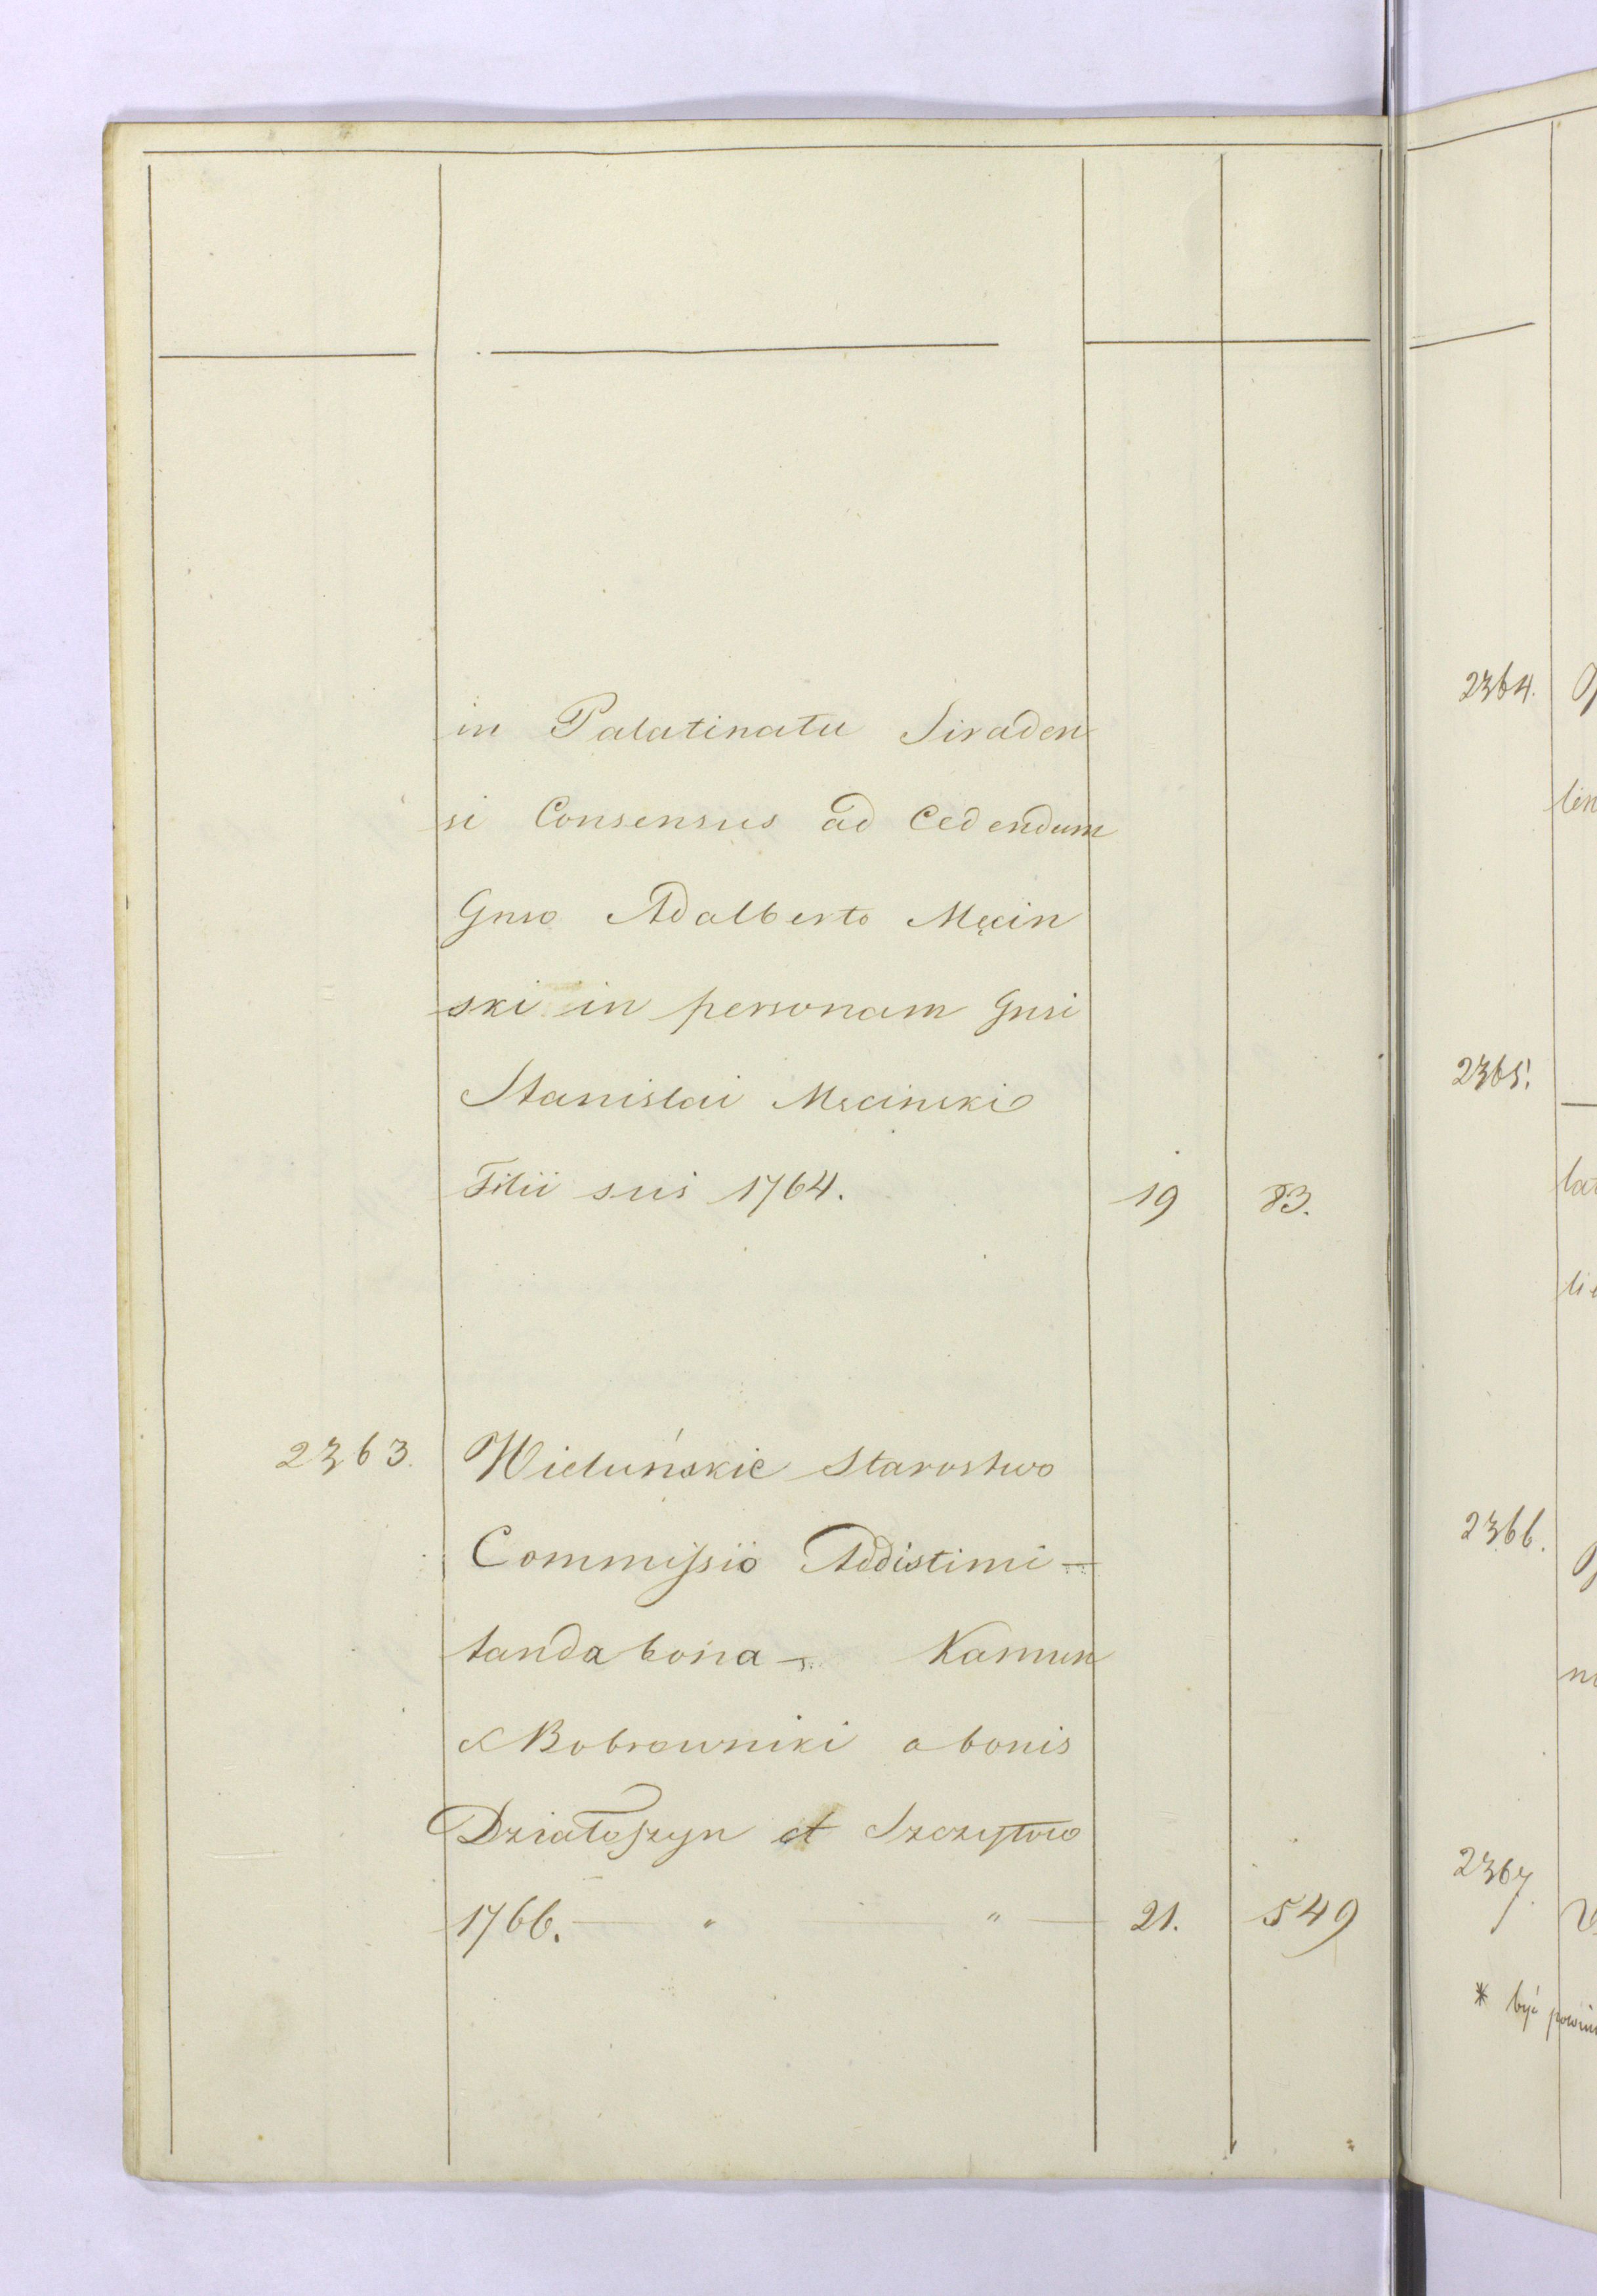 in Palatinatu Siraden
si Consensus ad Cedendum
Gnso Adalberto Męcin
ski in personam Gnsi
Stanislai Męcinski
Filii sui 1764. 19 83.
2363. Wieluńskie Starostwo
Commissio Addistimi-
tanda bona - Kamun
& Bobrowniki a bonis
Działoszyn et Szczytwo
1766. — " " — 21. 549
2364.
2365.
2366.
2367.
* być